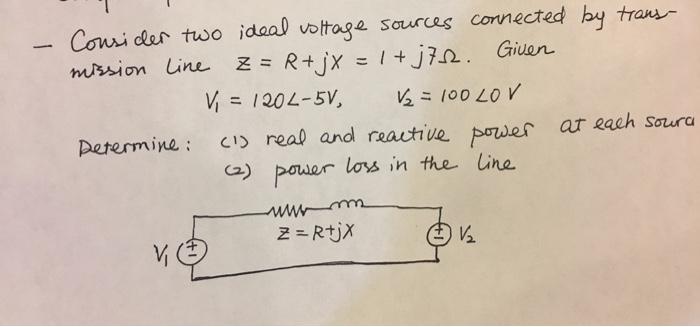 - Consider two ideal voltage sources connected by trans-
mission line Z = R+jX = 1 + j7Ω. Given
V₁ = 120∠-5V, V₂ = 100∠0 V
Determine: (1) real and reactive power at each sourc
(2) power loss in the line
Z = R+jX
V₁ V₂